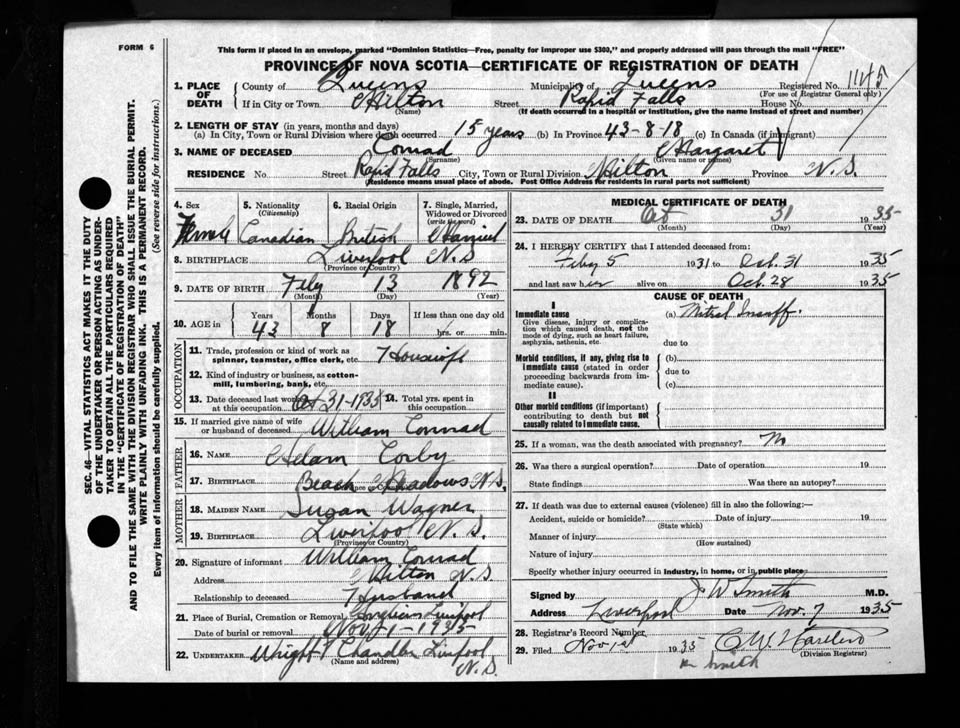 FORM 6
This form if placed in an envelope, marked "Dominion Statistics—Free, penalty for improper use $300," and properly addressed will pass through the mail "FREE"
PROVINCE OF NOVA SCOTIA—CERTIFICATE OF REGISTRATION OF DEATH
SEC. 46—VITAL STATISTICS ACT MAKES IT THE DUTY
OF THE UNDERTAKER OR PERSON ACTING AS UNDER-
TAKER TO OBTAIN ALL THE PARTICULARS REQUIRED
IN THE "CERTIFICATE OF REGISTRATION OF DEATH"
AND TO FILE THE SAME WITH THE DIVISION REGISTRAR WHO SHALL ISSUE THE BURIAL PERMIT.
WRITE PLAINLY WITH UNFADING INK. THIS IS A PERMANENT RECORD.
Every item of information should be carefully supplied. (See reverse side for instructions.)
1. PLACE OF DEATH County of Queens Municipality of Queens Registered No. 1145
(For use of Registrar General only)
If in City or Town Milton Street Rapid Falls House No.
(Name) (If death occurred in a hospital or institution, give the name instead of street and number)
2. LENGTH OF STAY (in years, months and days)
(a) In City, Town or Rural Division where death occurred 15 years (b) In Province 43-8-18 (c) In Canada (if immigrant)
3. NAME OF DECEASED Conrad Margaret
(Surname) (Given name or names)
RESIDENCE No. Street Rapid Falls City, Town or Rural Division Milton Province N.S.
(Residence means usual place of abode. Post Office Address for residents in rural parts not sufficient)
4. Sex 5. Nationality (Citizenship) 6. Racial Origin 7. Single, Married, Widowed or Divorced (write the word)
Female Canadian British Married
8. BIRTHPLACE Liverpool N.S
(Province or Country)
9. DATE OF BIRTH Feby 13 1892
(Month) (Day) (Year)
10. AGE in Years Months Days If less than one day old
43 8 18 hrs. or min.
OCCUPATION
11. Trade, profession or kind of work as spinner, teamster, office clerk, etc. Housewife
12. Kind of industry or business, as cotton-mill, lumbering, bank, etc.
13. Date deceased last worked at this occupation Oct 31-1935 14. Total yrs. spent in this occupation
15. If married give name of wife or husband of deceased William Conrad
FATHER
16. NAME Adam Corby
17. BIRTHPLACE Beach Meadows N.S.
MOTHER
18. MAIDEN NAME Susan Wagner
19. BIRTHPLACE Liverpool N.S.
(Province or Country)
20. Signature of informant William Conrad
Address Milton N.S.
Relationship to deceased Husband
21. Place of Burial, Cremation or Removal Liverpool
Date of burial or removal Nov 1-1935
22. UNDERTAKER Wright Chandler Liverpool
(Name and address) N.S.
MEDICAL CERTIFICATE OF DEATH
23. DATE OF DEATH Oct 31 1935
(Month) (Day) (Year)
24. I HEREBY CERTIFY that I attended deceased from:
Feby 5 1931 to Oct. 31 1935
and last saw her alive on Oct. 28 1935
CAUSE OF DEATH
I
Immediate cause (a) Mitral Insuff.
Give disease, injury or complication which caused death, not the mode of dying, such as heart failure, asphyxia, asthenia, etc.
due to
Morbid conditions, if any, giving rise to immediate cause (stated in order proceeding backwards from immediate cause).
(b)
due to
(c)
II
Other morbid conditions (if important) contributing to death but not causally related to immediate cause.
25. If a woman, was the death associated with pregnancy? No
26. Was there a surgical operation? Date of operation 19
State findings Was there an autopsy?
27. If death was due to external causes (violence) fill in also the following:
Accident, suicide or homicide? Date of injury 19
(State which)
Manner of injury
(How sustained)
Nature of injury
Specify whether injury occurred in industry, in home, or in public place.
Signed by J W Smith M.D.
Address Liverpool Date Nov. 7 1935
28. Registrar's Record Number
29. Filed Nov 1935
(Division Registrar)
Smith